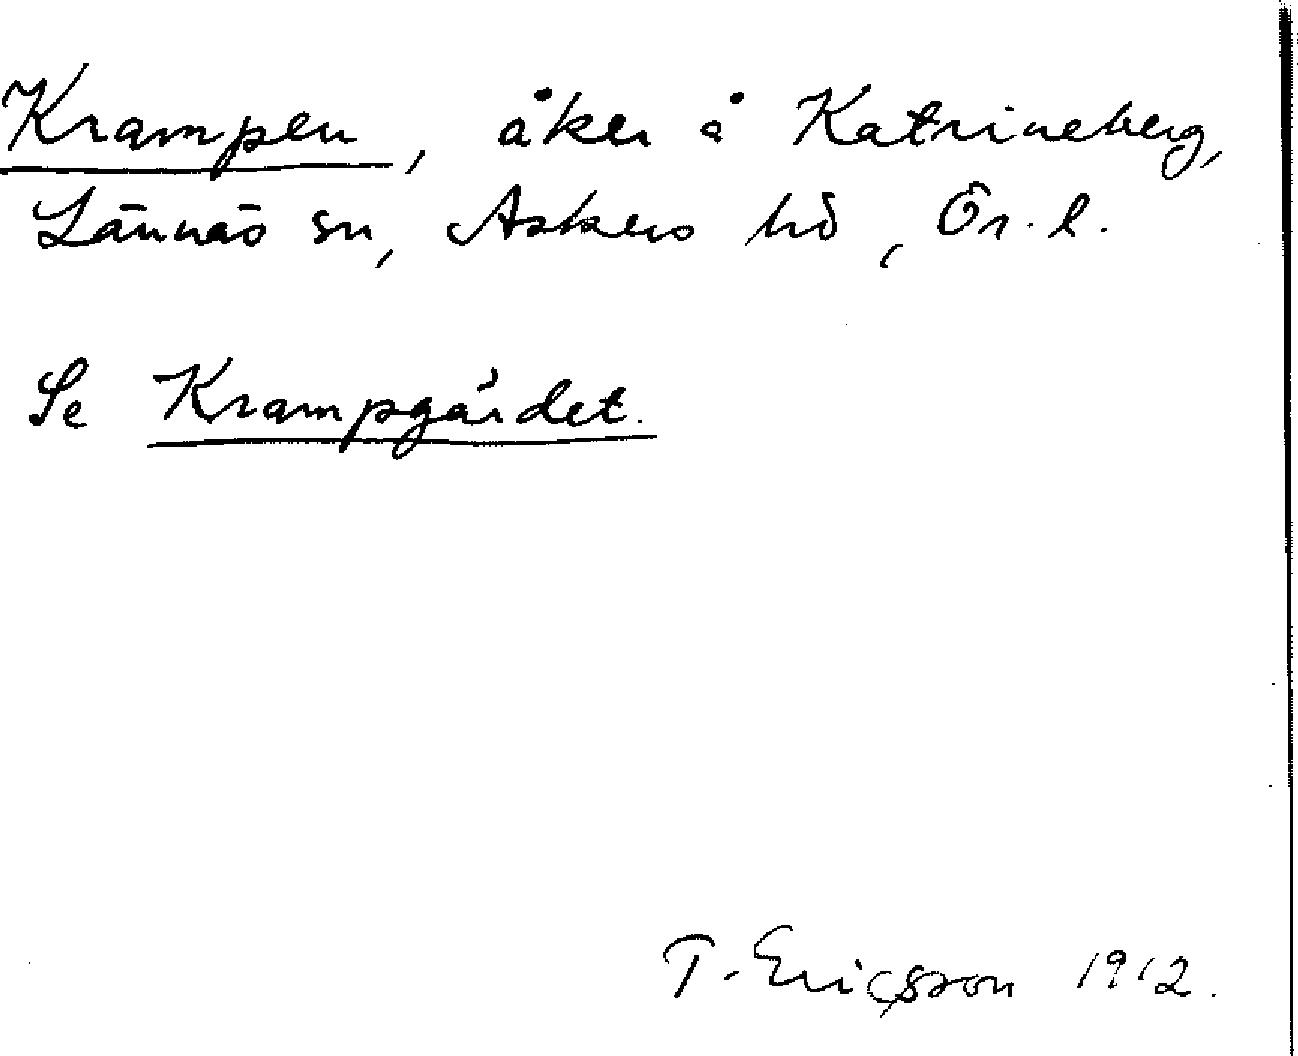 Krampen, åker å Katrineberg,
Lännäs sn, Askers hd, Ör. l.
Se Krampgärdet.
T. Ericsson 1912.